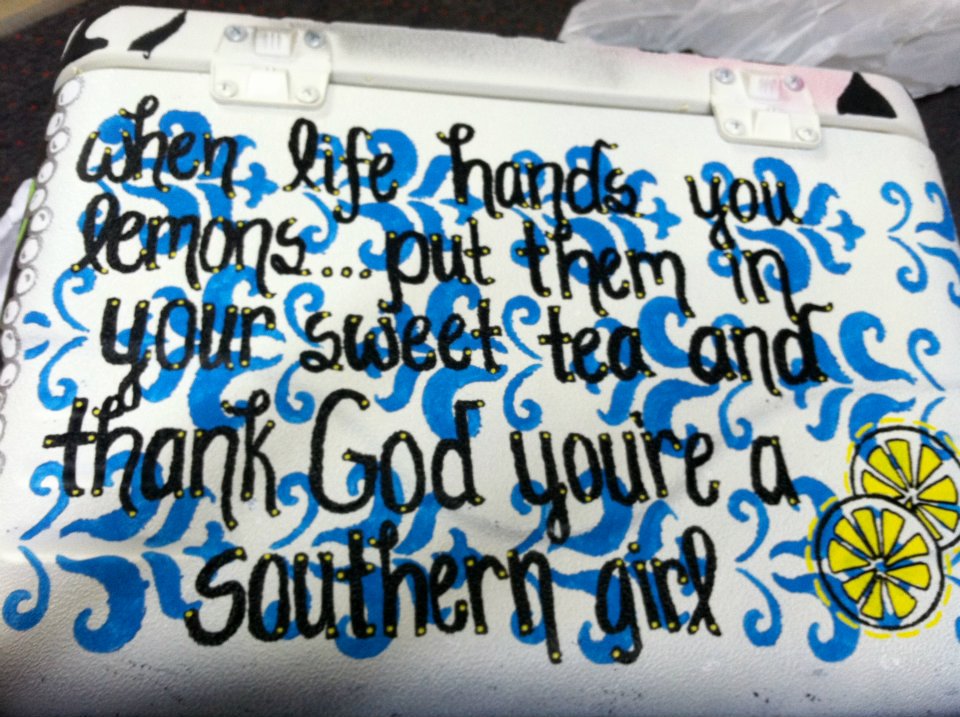 when life hands you
lemons....put them in
your sweet tea and
thank God you're a
southern girl